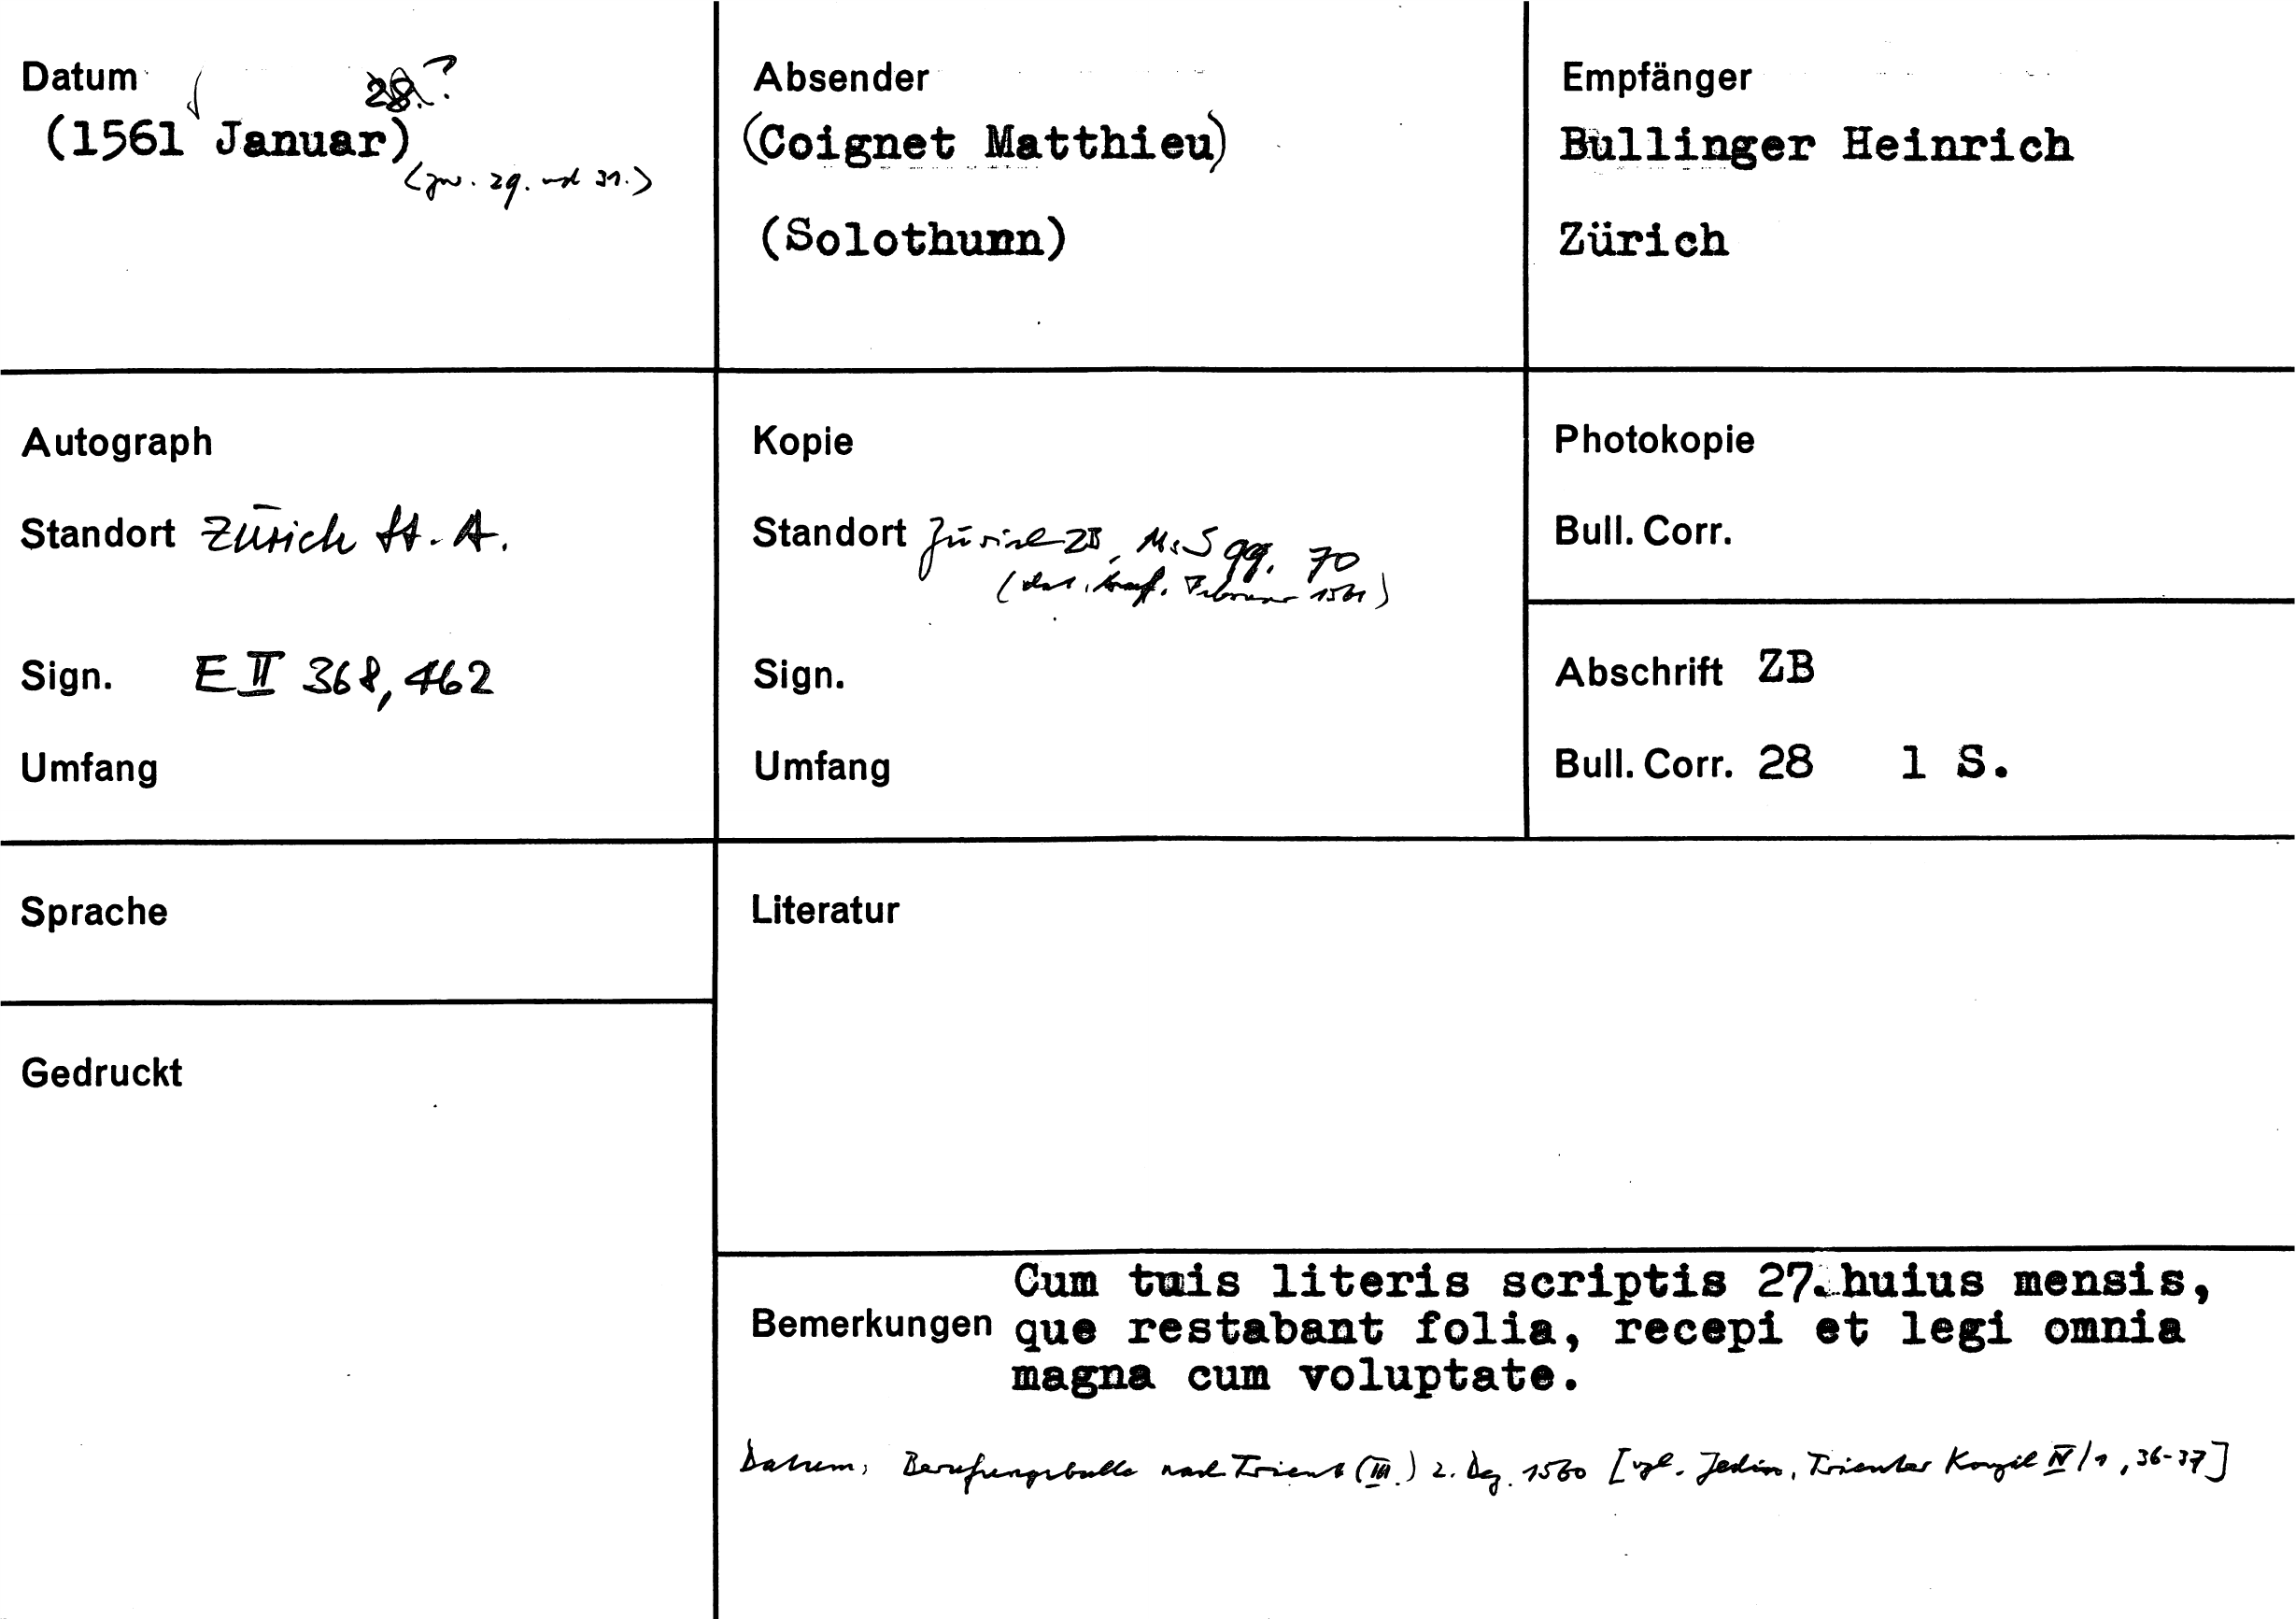 Datum 28.?
(1561 Januar)
(zw. 29. und 31.)
Absender
(Coignet Matthieu)
(Solothurn)
Empfänger
Bullinger Heinrich
Zürich
Autograph
Standort Zürich St. A.
Sign. E II 368, 462
Umfang
Kopie
Standort Zürich ZB, Ms S 99, 70
(dat. Anf. Februar 1561)
Sign.
Umfang
Photokopie
Bull. Corr.
Abschrift ZB
Bull. Corr. 28 1 S.
Sprache
Literatur
Gedruckt
Bemerkungen
Cum tuis literis scriptis 27. huius mensis,
que restabant folia, recepi et legi omnia
magna cum voluptate.
Datum: Berufungsbulle nach Trient (III.) 2. Dez. 1560 [vgl. Jedin, Trienter Konzil IV/1, 36-37]